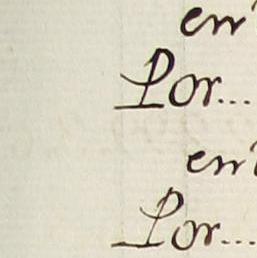 en
Por...
en
Por...